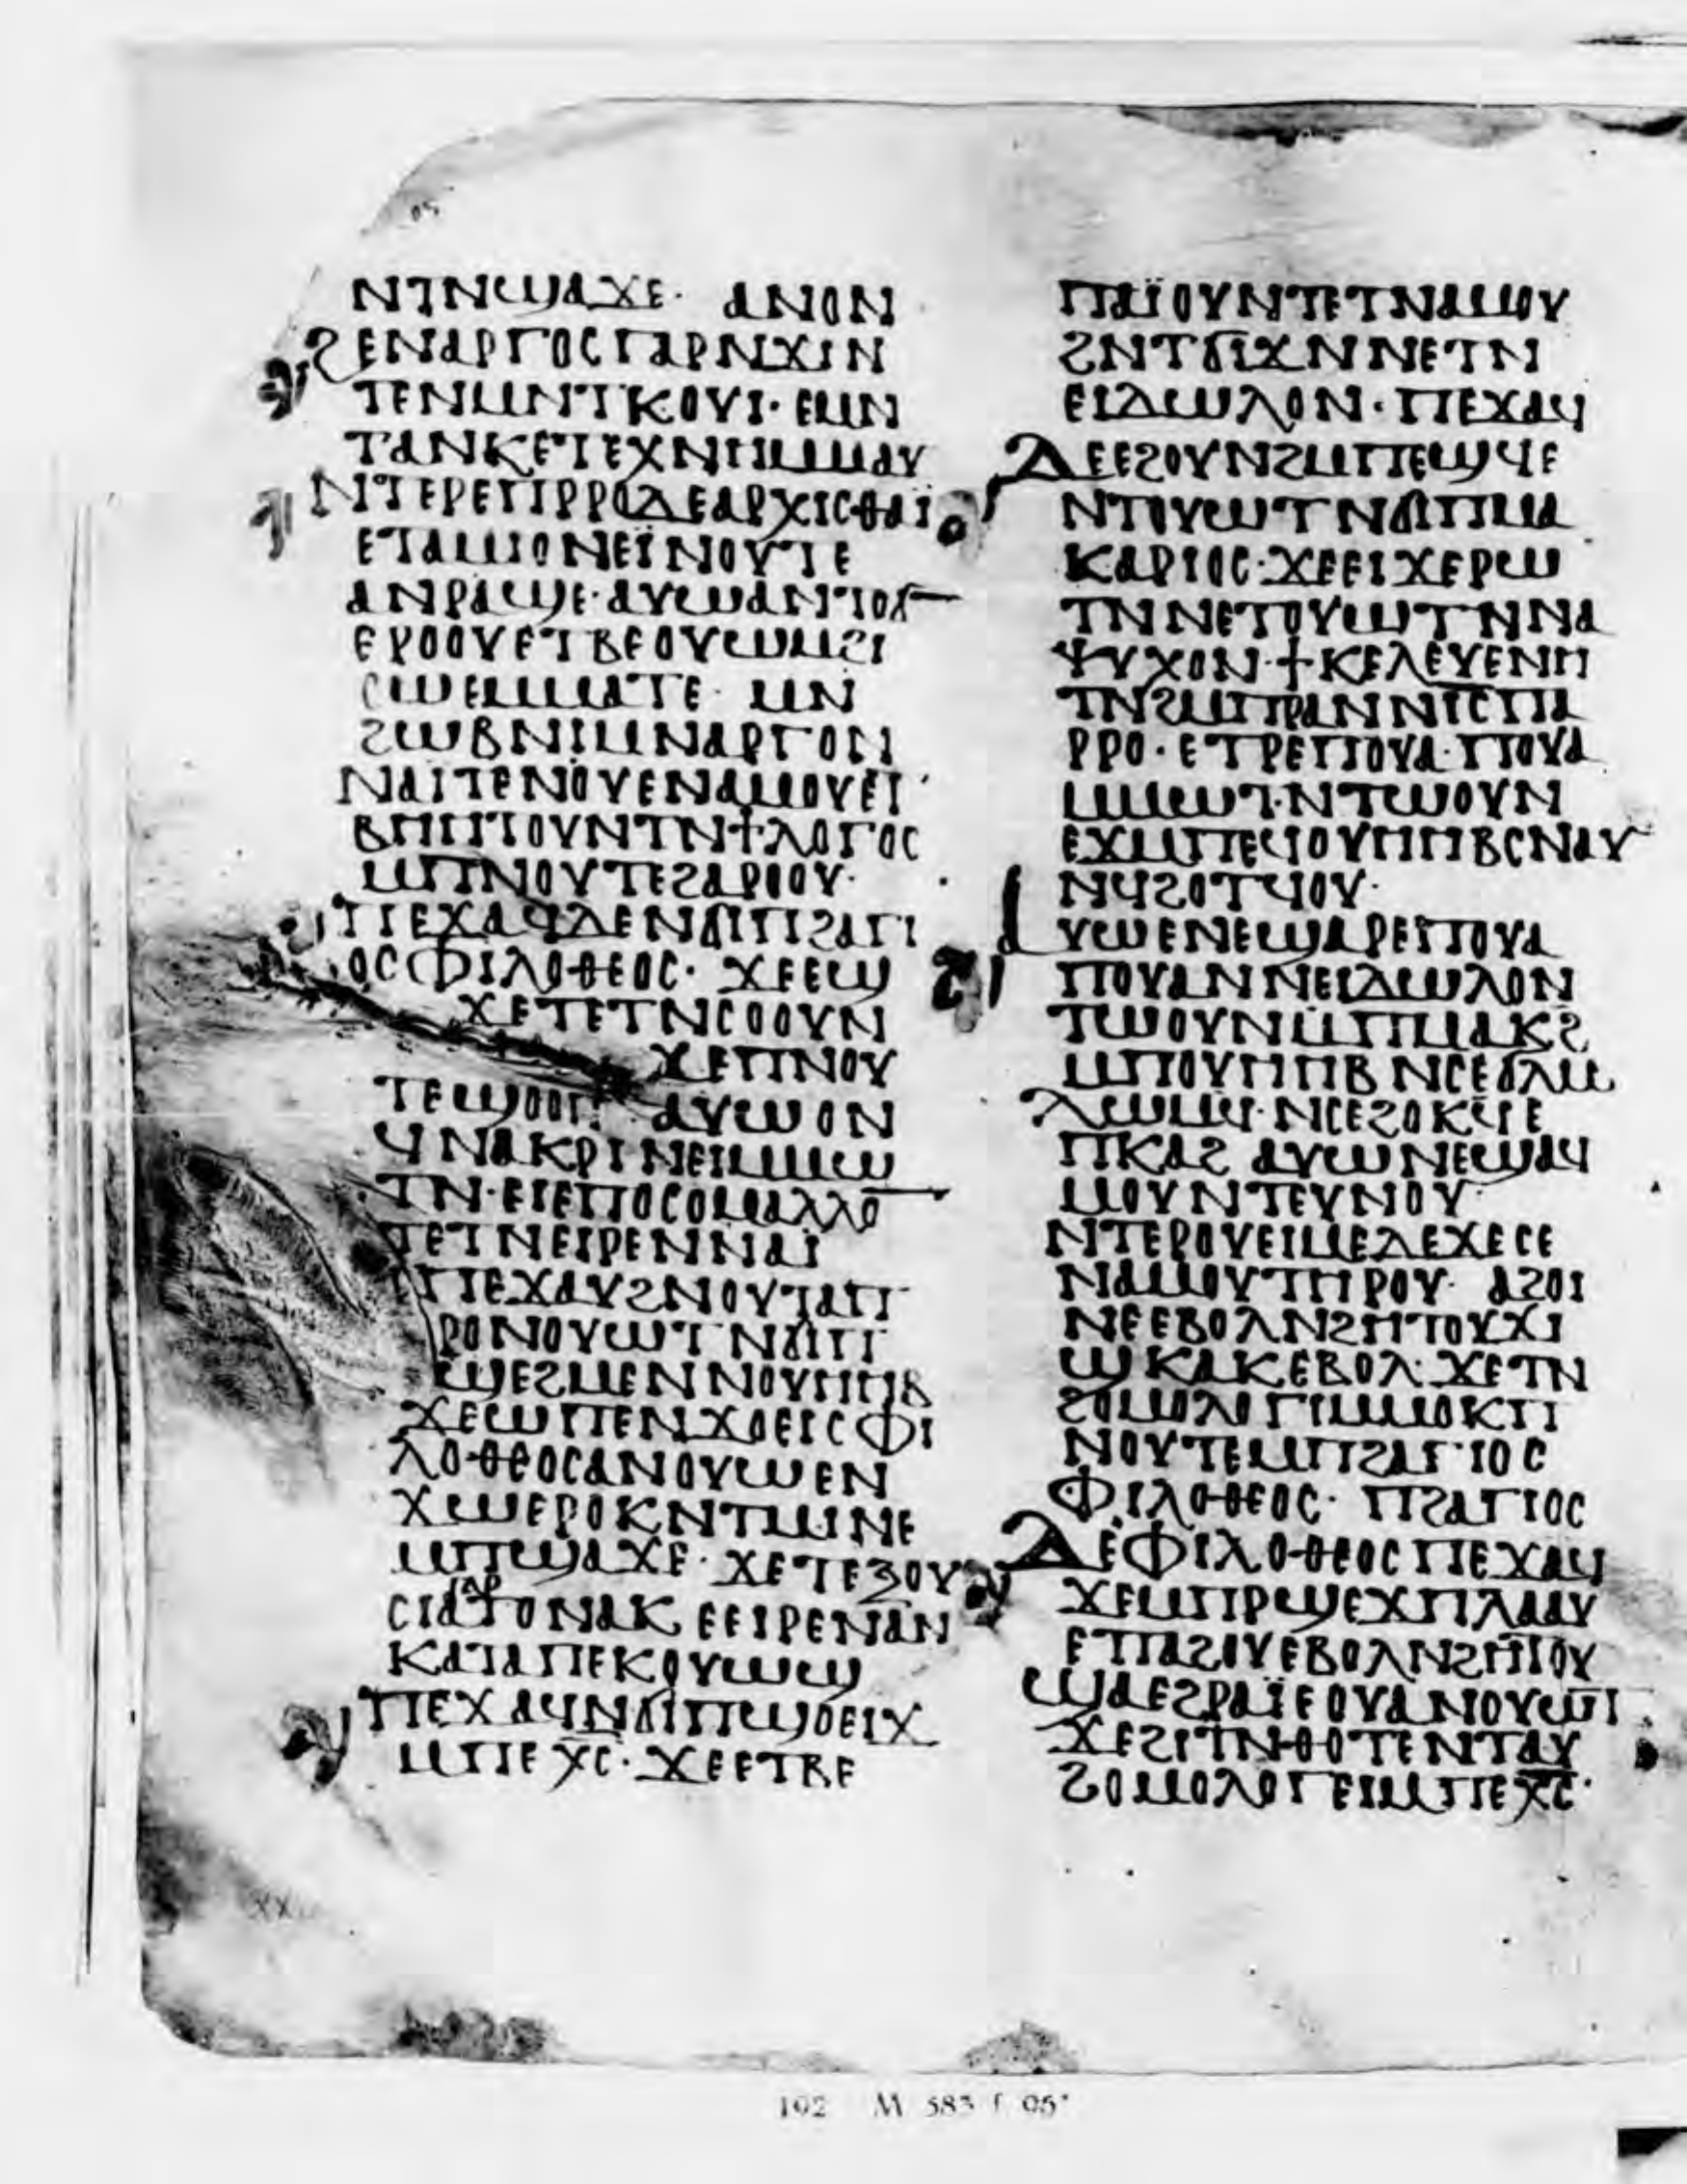 ⲛⲧⲛϣⲁϫⲉ· ⲁⲛⲟⲛ
ϩⲉⲛⲁⲣⲅⲟⲥⲅⲁⲣⲛϫⲓⲛ
ⲧⲉⲛⲙⲛⲧⲕⲟⲩⲓ· ⲉⲙⲛ
ⲧⲁⲛⲕⲉⲧⲉⲭⲛⲏⲙⲙⲁⲩ
ⲛⲧⲉⲣⲉⲡⲣⲣⲟⲇⲉⲁⲣⲭⲓⲥⲑⲁⲓ
ⲉⲧⲁⲙⲓⲟⲛⲉⲓⲛⲟⲩⲧⲉ
ⲁⲛⲣⲁϣⲉ·ⲁⲩⲱⲁⲛⲧⲟϭ
ⲉⲣⲟⲟⲩⲉⲧⲃⲉⲟⲩⲱⲙϩⲓ
ⲥⲱⲙⲙⲁⲧⲉ· ⲙⲛ
ϩⲱⲃⲛⲓⲙⲛⲁⲣⲅⲟⲛ
ⲛⲁⲓⲧⲉⲛⲟⲩⲉⲛⲁⲙⲟⲩⲉⲓ
ⲃⲏⲏⲧⲟⲩⲛⲧⲛϯⲗⲟⲅⲟⲥ
ⲙⲡⲛⲟⲩⲧⲉϩⲁⲣⲟⲟⲩ·
ⲡⲉϫⲁϥⲇⲉⲛϭⲓⲡϩⲁⲅⲓ
ⲟⲥⲫⲓⲗⲟⲑⲉⲟⲥ· ϫⲉⲉϣ
ϫⲉⲧⲉⲧⲛⲥⲟⲟⲩⲛ
ϫⲉⲡⲛⲟⲩ
ⲧⲉϣⲟⲟⲡ· ⲁⲩⲱⲟⲛ
ϥⲛⲁⲕⲣⲓⲛⲉⲓⲙⲙⲱ
ⲧⲛ·ⲉⲓⲉⲡⲟⲥⲟⲙⲁⲗⲗⲟ
ⲧⲉⲧⲛⲉⲓⲣⲉⲛⲛⲁⲓ
ⲡⲉϫⲁⲩϩⲛⲟⲩⲧⲁⲡ
ⲣⲟⲛⲟⲩⲱⲧⲛϭⲓⲡ
ϣⲉϩⲙⲉⲛⲛⲟⲩⲏⲏⲃ
ϫⲉⲱⲡⲉⲛϫⲟⲉⲓⲥⲫⲓ
ⲗⲟⲑⲉⲟⲥⲁⲛⲟⲩⲱⲉⲛ
ϫⲱⲉⲣⲟⲕⲛⲧⲙⲛⲉ
ⲙⲡϣⲁϫⲉ· ϫⲉⲧⲉⲝⲟⲩ
ⲥⲓⲁⲅⲁⲣⲧⲟⲛⲁⲕⲉⲉⲓⲣⲉⲛⲁⲛ
ⲕⲁⲧⲁⲡⲉⲕⲟⲩⲱϣ
ⲡⲉϫⲁϥⲛϭⲓⲡϣⲟⲉⲓϫ
ⲙⲡⲉⲭⲥ· ϫⲉⲉⲧⲃⲉ
ⲡⲁⲓⲟⲩⲛⲧⲉⲧⲛⲁⲙⲟⲩ
ϩⲛⲧϭⲓϫⲛⲛⲉⲧⲛ
ⲉⲓⲇⲱⲗⲟⲛ· ⲡⲉϫⲁϥ
ⲇⲉⲉϩⲟⲩⲛϩⲙⲡⲉϣϥⲉ
ⲛⲧⲟⲩⲱⲧⲛϭⲓⲡⲙⲁ
ⲕⲁⲣⲓⲟⲥ·ϫⲉⲉⲓϫⲉⲣⲱ
ⲧⲛⲛⲉⲧⲟⲩⲱⲧⲛⲛⲁ
ⲯⲩⲭⲟⲛ·ϯⲕⲉⲗⲉⲩⲉⲛⲏ
ⲧⲛϩⲙⲡⲣⲁⲛⲛⲓⲥⲡⲁ
ⲣⲣⲟ· ⲉⲧⲣⲉⲡⲟⲩⲁ·ⲡⲟⲩⲁ
ⲙⲙⲱⲧⲛⲧⲱⲟⲩⲛ
ⲉϫⲙⲡⲉϥⲟⲩⲏⲏⲃⲥⲛⲁⲩ
ⲛϥϩⲟⲧϥⲟⲩ·
ⲁⲩⲱⲉⲛⲉϣⲁⲣⲉⲡⲟⲩⲁ
ⲡⲟⲩⲁⲛⲛⲉⲓⲇⲱⲗⲟⲛ
ⲧⲱⲟⲩⲛⲙⲡⲙⲁⲕϩ
ⲙⲡⲟⲩⲏⲏⲃⲛⲥⲉϭⲗⲙ
ⲗⲱⲙϥ·ⲛⲥⲉϩⲟⲕϥⲉ
ⲡⲕⲁϩ ⲁⲩⲱⲛⲉϣⲁϥ
ⲙⲟⲩⲛⲧⲉⲩⲛⲟⲩ·
ⲛⲧⲉⲣⲟⲩⲉⲓⲙⲉⲇⲉϫⲉⲥⲉ
ⲛⲁⲙⲟⲩⲧⲏⲣⲟⲩ· ⲁϩⲟⲓ
ⲛⲉⲉⲃⲟⲗⲛϩⲏⲧⲟⲩϫⲓ
ϣⲕⲁⲕⲉⲃⲟⲗ· ϫⲉⲧⲛ
ϩⲟⲙⲟⲗⲟⲅⲓⲙⲙⲟⲕⲡ
ⲛⲟⲩⲧⲉⲙⲡϩⲁⲅⲓⲟⲥ
ⲫⲓⲗⲟⲑⲉⲟⲥ· ⲡϩⲁⲅⲓⲟⲥ
ⲇⲉⲫⲓⲗⲟⲑⲉⲟⲥⲡⲉϫⲁϥ
ϫⲉⲙⲡⲣϣⲉϫⲡⲗⲁⲁⲩ
ⲉⲡⲁϩⲟⲩⲉⲃⲟⲗⲛϩⲏⲧⲟⲩ
ϣⲁⲉϩⲣⲁⲓⲉⲟⲩⲁⲛⲟⲩⲱⲧ
ϫⲉϩⲓⲧⲛⲑⲟⲧⲉⲛⲧⲁⲩ
ϩⲟⲙⲟⲗⲟⲅⲉⲓⲙⲡⲉⲭⲥ·
102 M 583 f 95ʳ